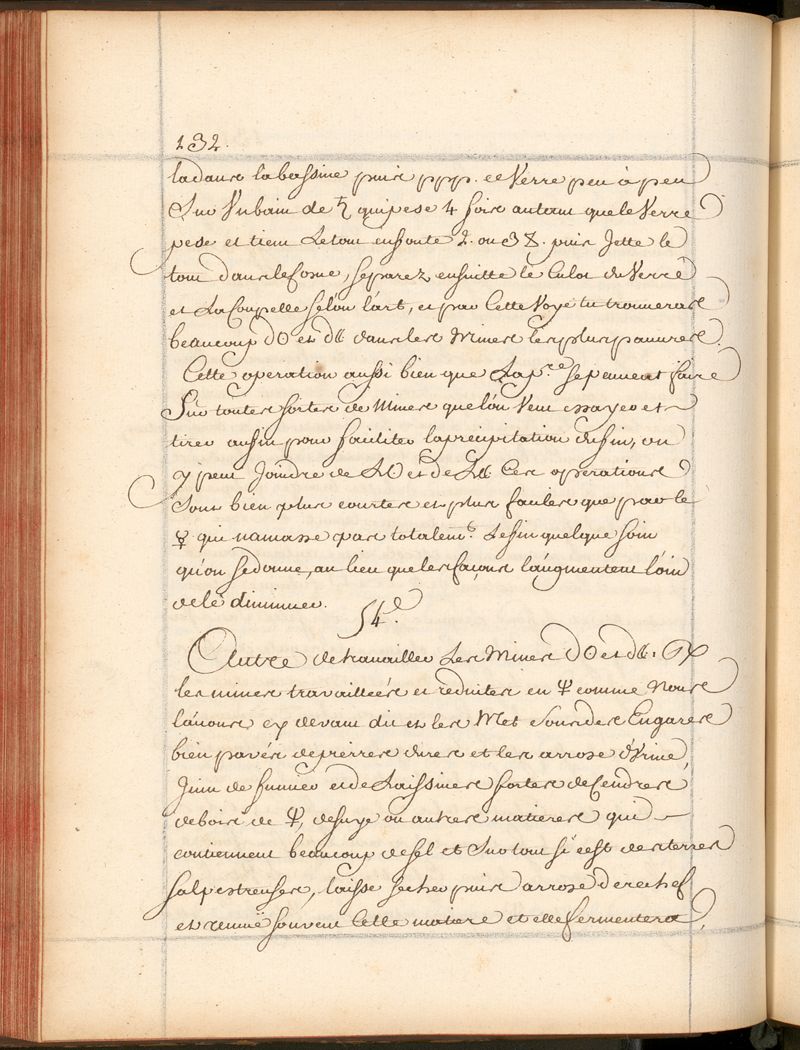 132.
la dans la bassine puis ppp. ce Verre peu à peu
Sur Un bain de ♄ qui pese 4 fois autant que le Verre
pese et tien Le tout en fonte 2. ou 3 . puis Jette le
tout dans le Cosne, Separez ensuitte le Culot du Verre
et La Coupelle Selon l'art, et par Cette Voye tu trouveras
beaucoup d'☉ et d' dans les Mines les plus pauvres.
Cette operation aussi bien que La pre. se peuvent faire
Sur toutes sortes de Mines que l'on Veut essayer et
tirer aussin pour faciliter la précipitation du fin, on
y peut Joindre de L'☉ et de L' Ces operations
Sont bien plus courtes et plus faciles que par le
☿ qui n'amasse pas totalemt. Le fin quelque soin
qu'on se donne, au lieu que les façons l'augmentent loin
de le diminuer.
54e.
Autre de travailler Les Mines d'☉ et d'.
les mines travailleés et reduites en  comme Nous
l'avons cy devant dit et les Met Sous des Engares
bien pavés de pierres dures et les arrose d'Urine,
Juin de fumier et de Laissives fortes de Cendres
de bois de , de suye ou autres matieres qui
contiennent beaucoup de sel et Sur tout si c'est des terres
salpestreuses, laisse secher puis arrose derechef
et remuë souvent Cette matiere et elle fermentera,